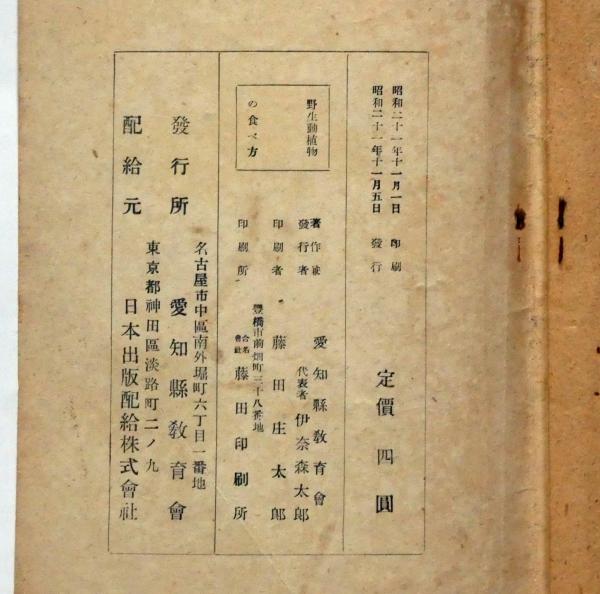 昭和二十一年十一月一日 印刷
昭和二十一年十一月五日 發行
定價 四圓
野生動植物
の食べ方
著作兼
發行者
愛知縣教育會
代表者 伊奈森太郎
印刷者 藤田庄太郎
豊橋市前畑町三十八番地
印刷所 合名會社 藤田印刷所
名古屋市中區南外堀町六丁目一番地
發行所 愛知縣教育會
東京都神田區淡路町二ノ九
配給元 日本出版配給株式會社